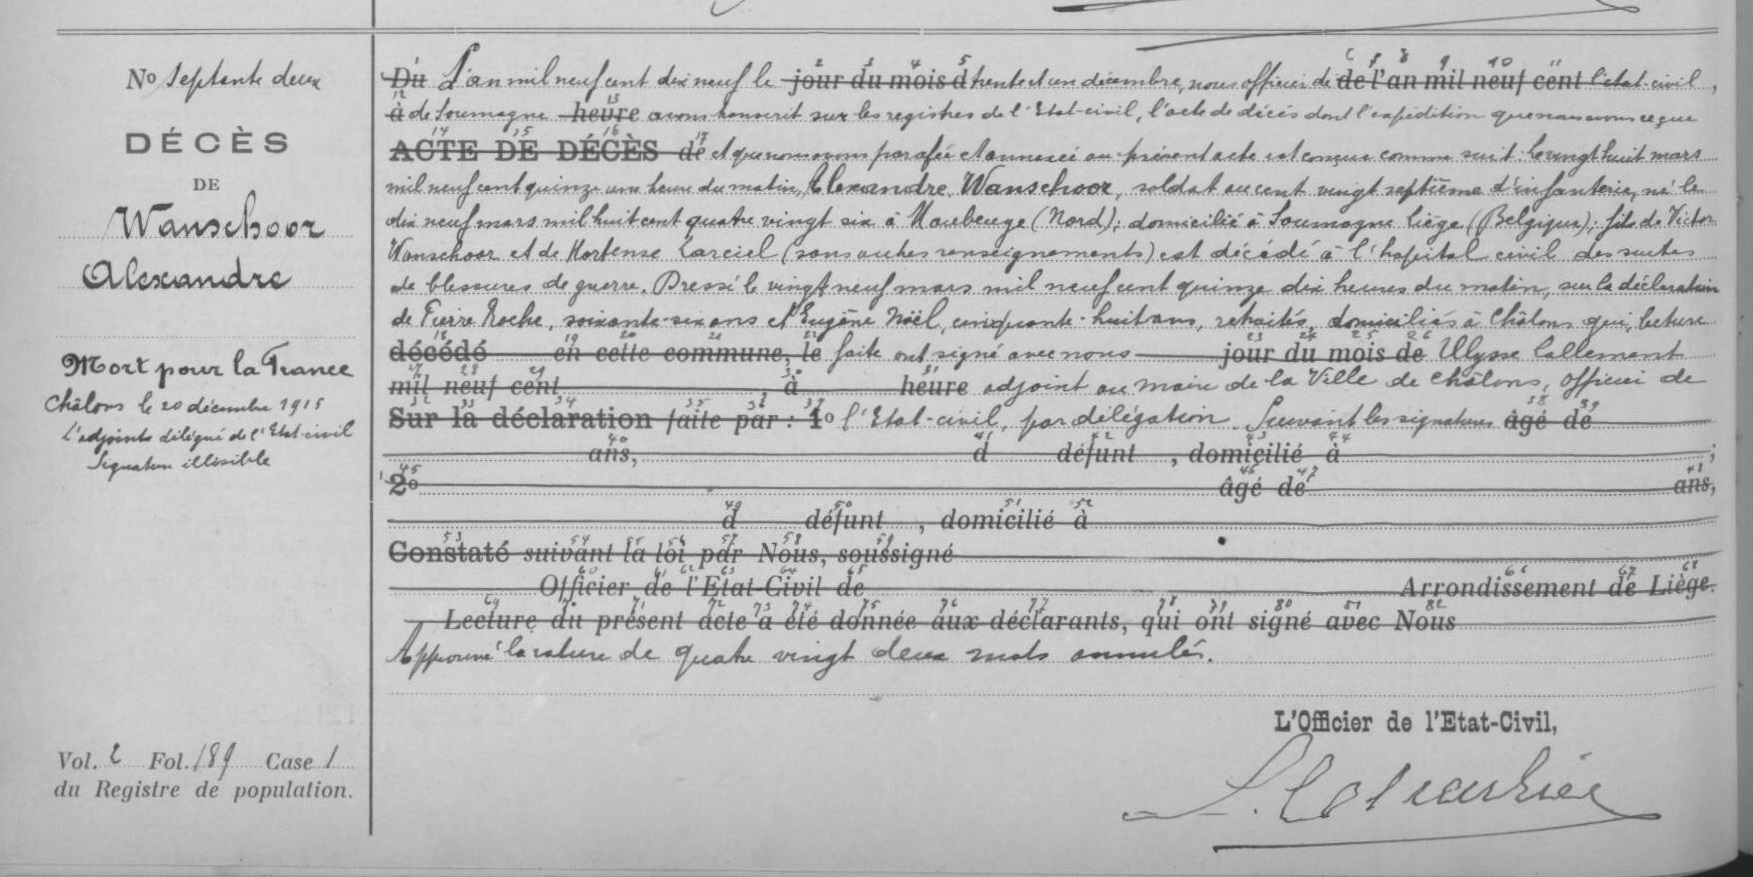 No septante deux
DÉCÈS
DE
Wanschoor
Alexandre
Mort pour la France
Châlons le 20 décembre 1915
l'adjoint délégué de l'Etat-civil
Signature illisible
Vol. 2 Fol. 189 Case 1
du Registre de population.
Du L'an mil neuf cent dix neuf le jour du mois d trente et un décembre, nous officier de de l'an mil neuf cent l'état-civil,
à de Soumagne heure avons transcrit sur les registres de l'Etat-civil, l'acte de décès dont l'expédition que nous avons reçue
ACTE DE DÉCÈS de et que nous avons parafée et annexée au présent acte est conçue comme suit: le vingt huit mars
mil neuf cent quinze une heure du matin, Alexandre Wanschoor, soldat au cent vingt septième d'infanterie, né le
dix neuf mars mil huit cent quatre vingt six à Maubeuge (Nord); domicilié à Soumagne Liège (Belgique); fils de Victor
Wanschoor et de Hortense Larciel (sans autres renseignements) est décédé à l'hopital civil des suites
de blessures de guerre. Dressé le vingt neuf mars mil neuf cent quinze dix heures du matin, sur la déclaration
de Pierre Roche, soixante-six ans et Eugène Noël, cinquante-huit ans, retraités, domiciliés à Châlons qui, lecture
décédé en cette commune, le faite ont signé avec nous jour du mois de Ulysse Lallement
mil neuf cent à heure adjoint au maire de la Ville de Châlons, officier de
Sur la déclaration faite par : 1o l'Etat-civil, par délégation. Suivant les signatures âgé de
ans, d défunt , domicilié à ;
2o âgé de ans,
d défunt , domicilié à
Constaté suivant la loi par Nous, soussigné
Officier de l'Etat-Civil de Arrondissement de Liège.
Lecture du présent acte a été donnée aux déclarants, qui ont signé avec Nous
Approuvé la rature de quatre vingt deux mots annulés.
L'Officier de l'Etat-Civil,